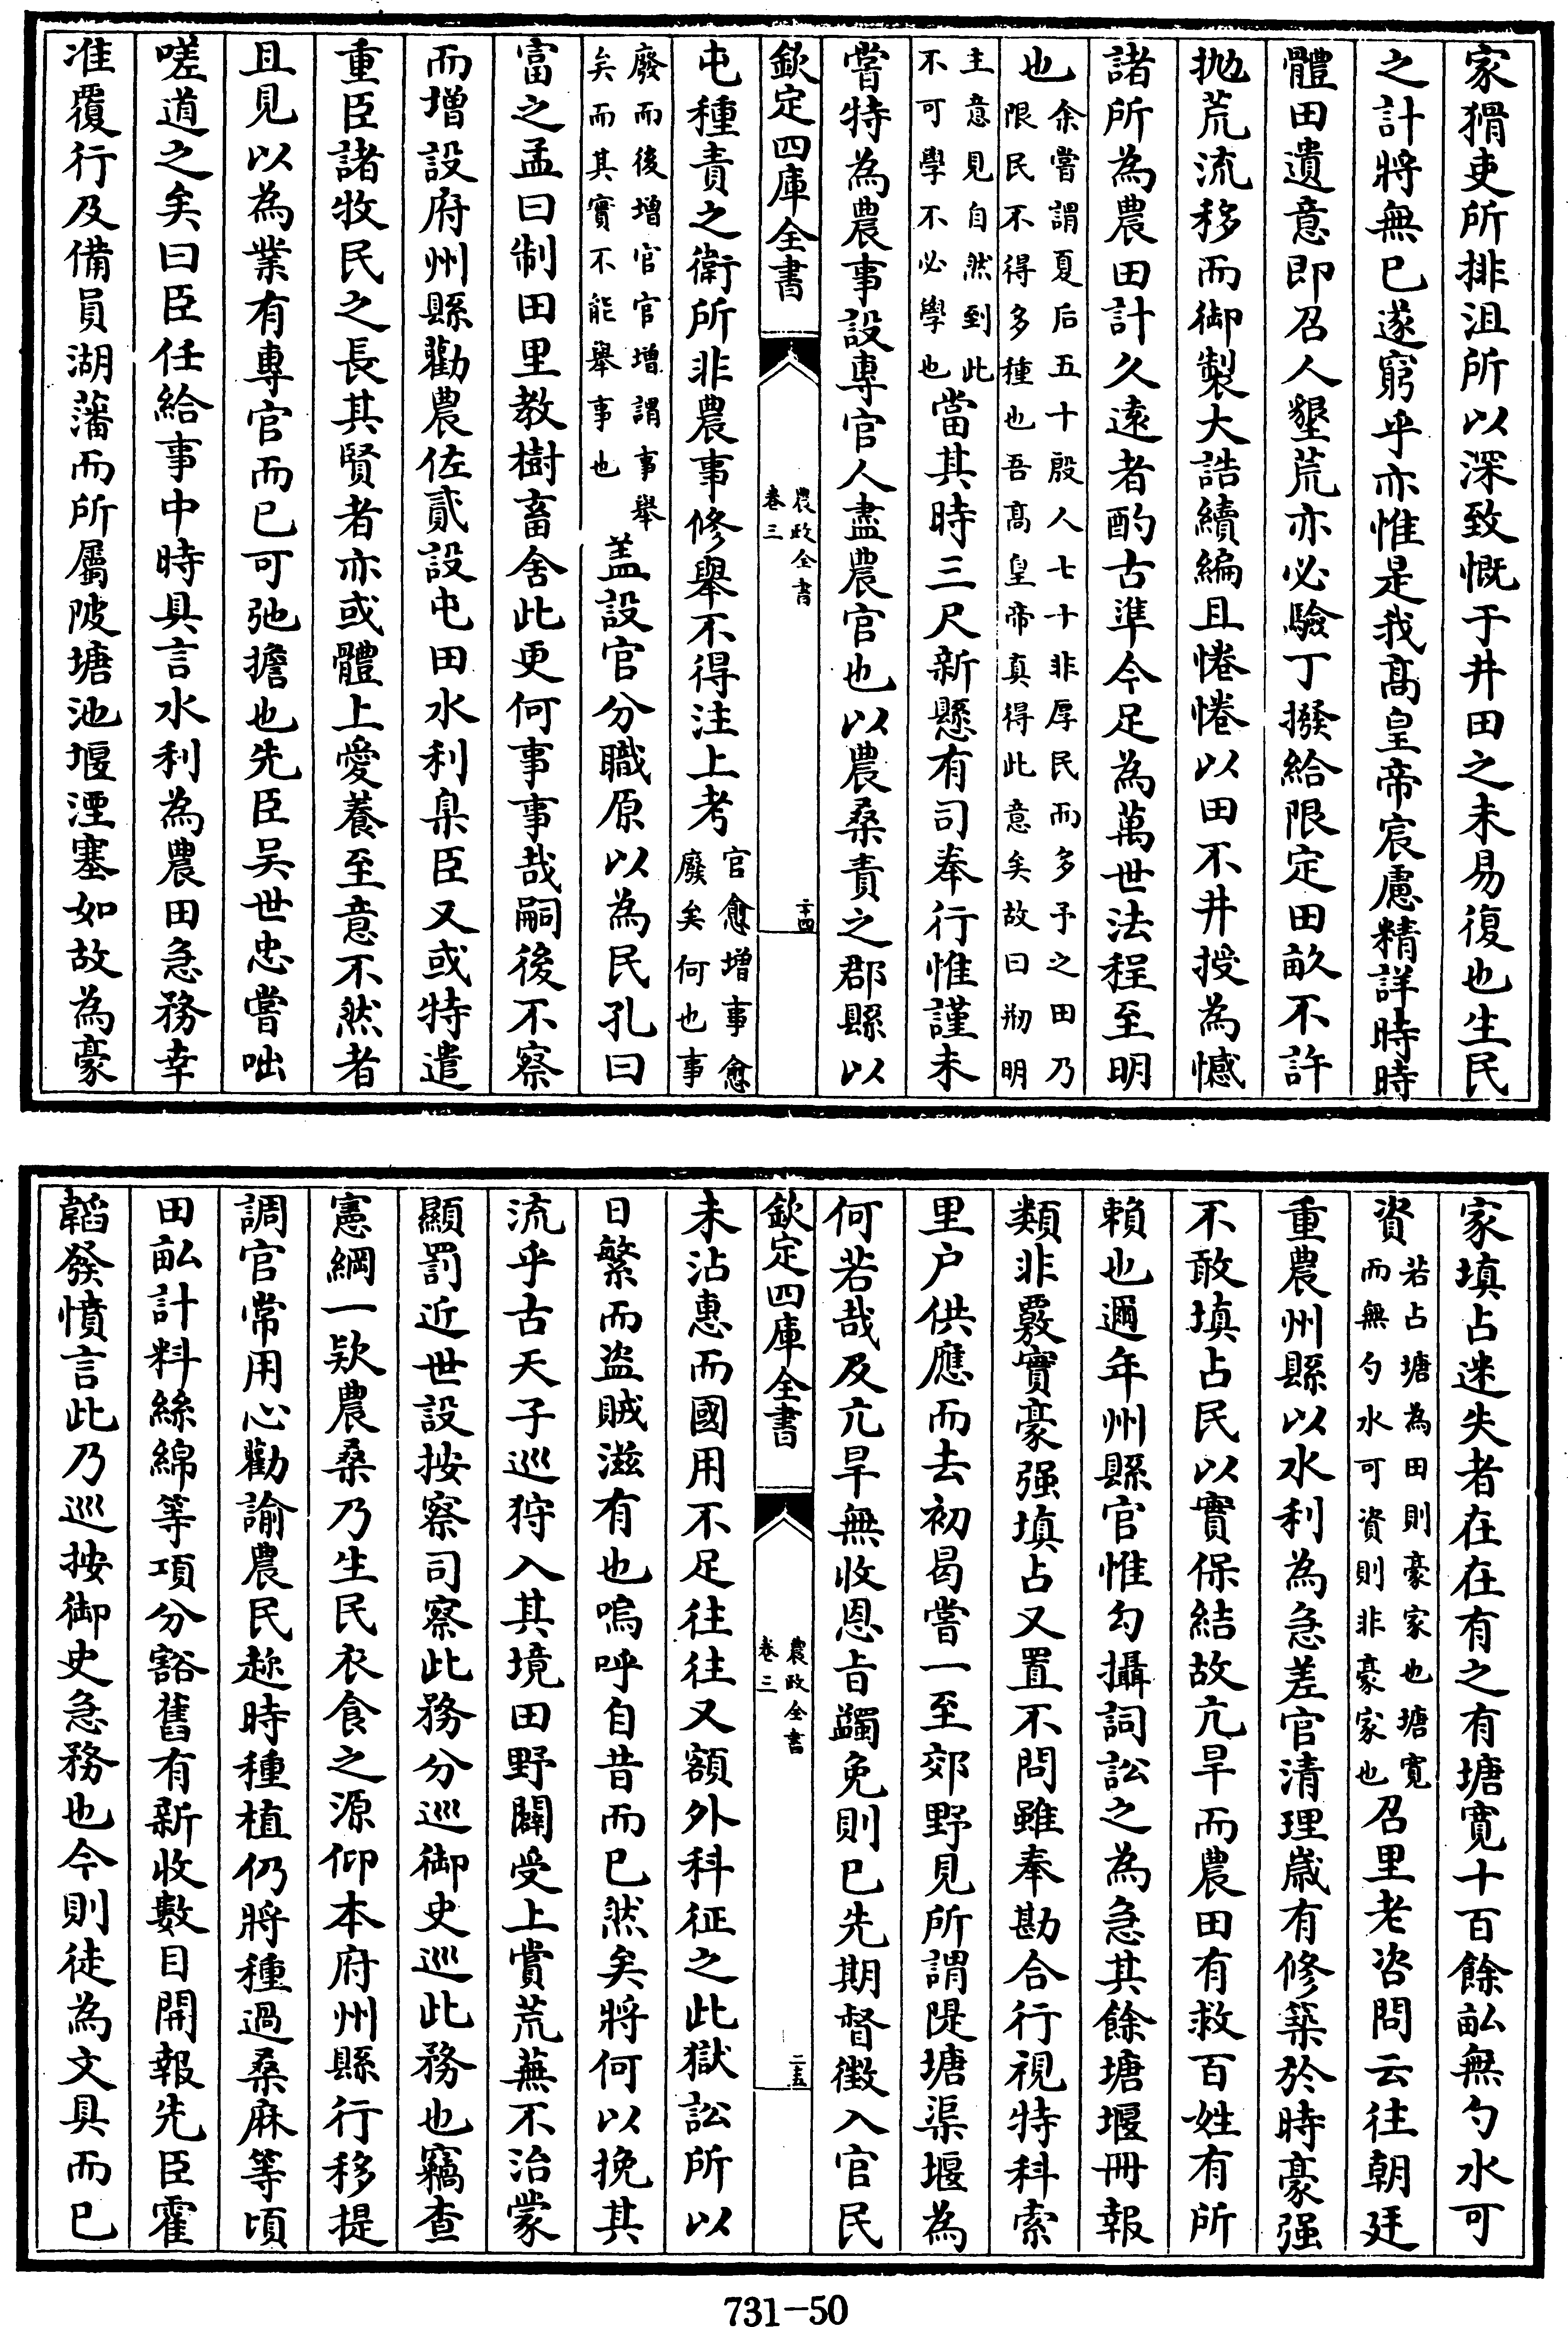 家猾吏所排沮所以深致慨于井田之未易復也生民
之計將無已遂窮乎亦惟是我髙皇帝宸慮精詳時時
體田遺意即召人墾荒亦必驗丁撥給限定田畝不許
拋荒流移而御製大誥續編且惓惓以田不井授為憾
諸所為農田計久逺者酌古凖今足為萬世法程至明
也余嘗謂夏后五十殷人七十非厚民而多予之田乃
限民不得多種也吾髙皇帝真得此意矣故曰剏明
主意見自然到此
不可學不必學也當其時三尺新懸有司奉行惟謹未
嘗特為農事設專官人盡農官也以農桑責之郡縣以
欽定四庫全書
農政全書
卷三
二十四
屯種責之衛所非農事修舉不得注上考官愈増事愈
廢矣何也事
廢而後増官官増謂事舉
矣而其實不能舉事也盖設官分職原以為民孔曰
富之孟曰制田里教樹畜舍此更何事事哉嗣後不察
而増設府州縣勸農佐貳設屯田水利臬臣又或特遣
重臣諸牧民之長其賢者亦或體上愛養至意不然者
且見以為業有專官而已可弛擔也先臣吴世忠嘗咄
嗟道之矣曰臣任給事中時具言水利為農田急務幸
准覆行及備員湖藩而所屬陂塘池堰湮塞如故為豪
家填占迷失者在在有之有塘寛十百餘畝無勺水可
資若占塘為田則豪家也塘寛
而無勺水可資則非豪家也召里老咨問云往朝廷
重農州縣以水利為急差官清理嵗有修築於時豪强
不敢填占民以實保結故亢旱而農田有救百姓有所
賴也邇年州縣官惟勾攝詞訟之為急其餘塘堰冊報
類非覈實豪强填占又置不問雖奉勘合行視特科索
里户供應而去初曷嘗一至郊野見所謂隄塘渠堰為
何若哉及亢旱無收恩㫖蠲免則已先期督徴入官民
欽定四庫全書
農政全書
卷三
二十五
未沾惠而國用不足往往又額外科征之此獄訟所以
日繁而盗賊滋有也嗚呼自昔而已然矣將何以挽其
流乎古天子巡狩入其境田野闢受上賞荒蕪不治蒙
顯罰近世設按察司察此務分巡御史巡此務也竊查
憲綱一欵農桑乃生民衣食之源仰本府州縣行移提
調官常用心勸諭農民趂時種植仍將種過桑麻等頃
田畝計料絲綿等項分豁舊有新收數目開報先臣霍
韜發憤言此乃巡按御史急務也今則徒為文具而已
731-50